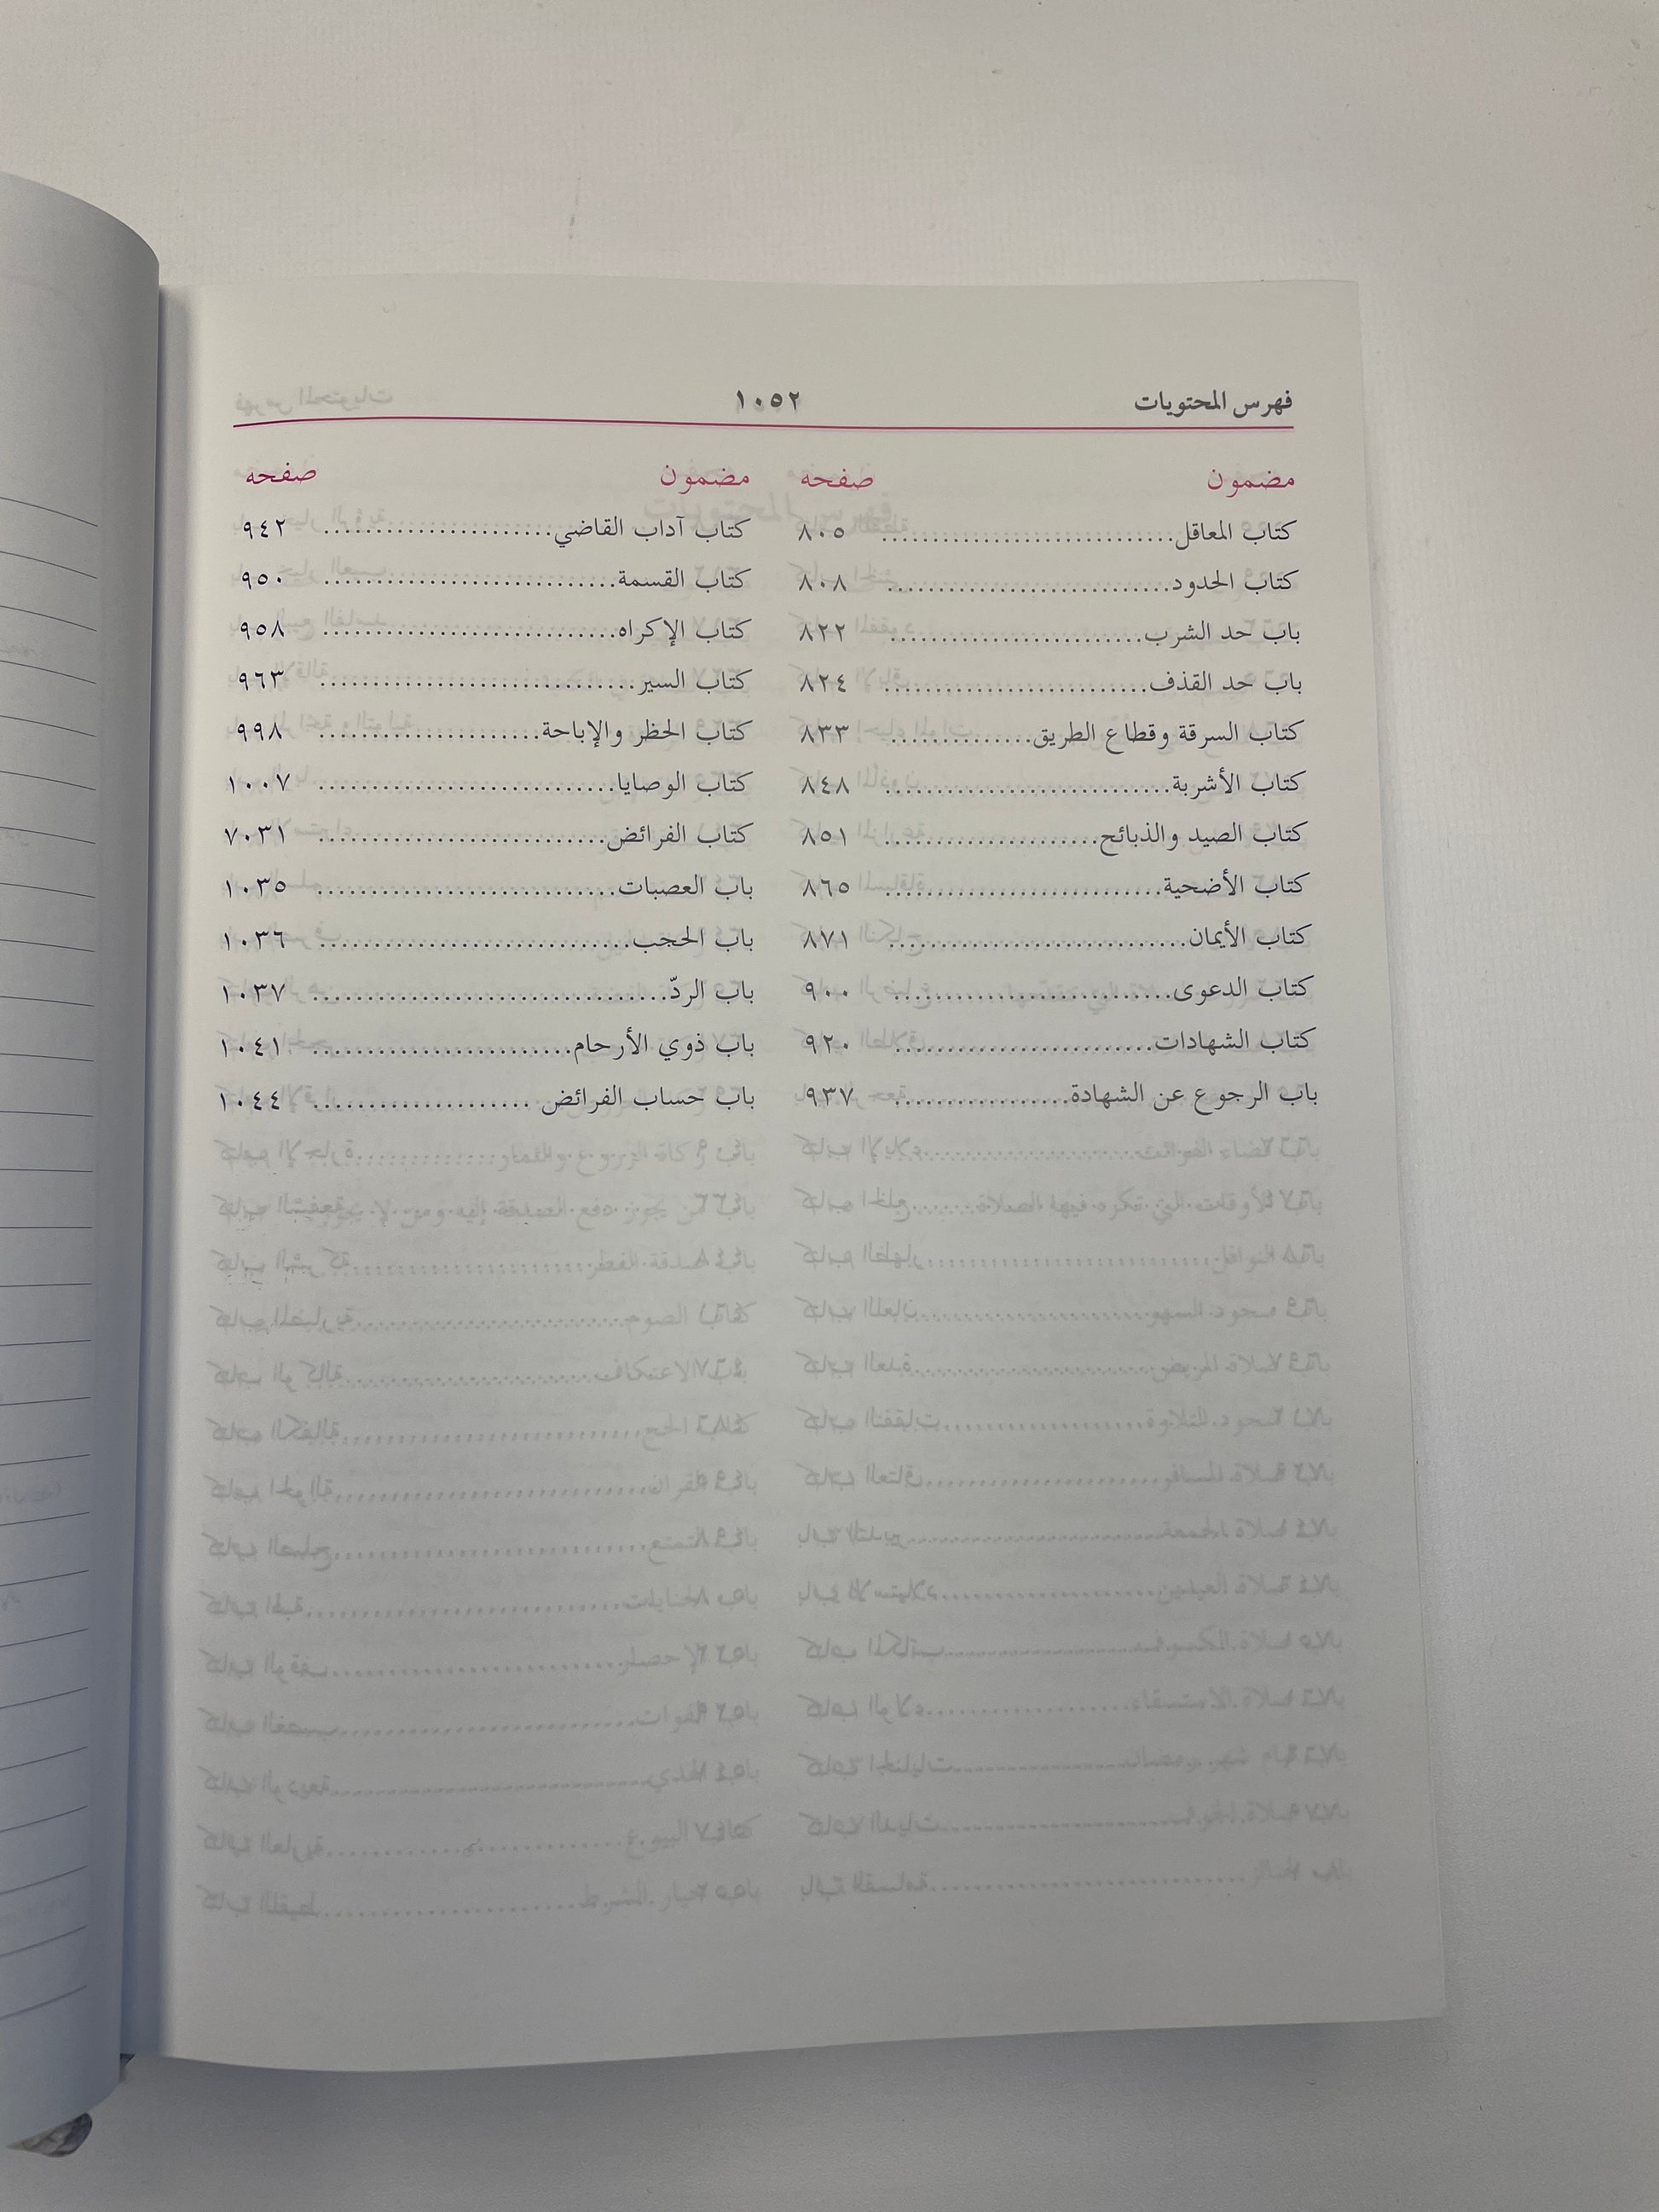 فهرس المحتويات ١٠٥٢
مضمون صفحه
كتاب المعاقل.............................. ٨٠٥
كتاب الحدود.............................. ٨٠٨
باب حد الشرب.......................... ٨٢٢
باب حد القذف........................... ٨٢٤
كتاب السرقة وقطاع الطريق............... ٨٣٣
كتاب الأشربة............................. ٨٤٨
كتاب الصيد والذبائح...................... ٨٥١
كتاب الأضحية............................ ٨٦٥
كتاب الأيمان.............................. ٨٧١
كتاب الدعوى............................. ٩٠٠
كتاب الشهادات........................... ٩٢٠
باب الرجوع عن الشهادة................... ٩٣٧
مضمون صفحه
كتاب آداب القاضي........................ ٩٤٢
كتاب القسمة.............................. ٩٥٠
كتاب الإكراه.............................. ٩٥٨
كتاب السير................................ ٩٦٣
كتاب الحظر والإباحة....................... ٩٩٨
كتاب الوصايا.............................. ١٠٠٧
كتاب الفرائض............................. ٧٠٣١
باب العصبات.............................. ١٠٣٥
باب الحجب................................ ١٠٣٦
باب الردّ................................... ١٠٣٧
باب ذوي الأرحام.......................... ١٠٤١
باب حساب الفرائض ...................... ١٠٤٤